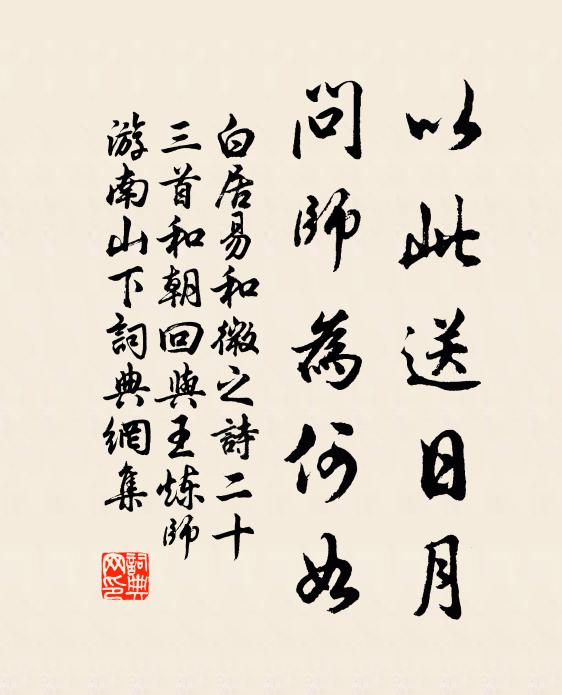 以此送日月
問師為何如
白居易和微之詩二十
三首和朝回與王炼師
游南山下詞典網集
詞典网印